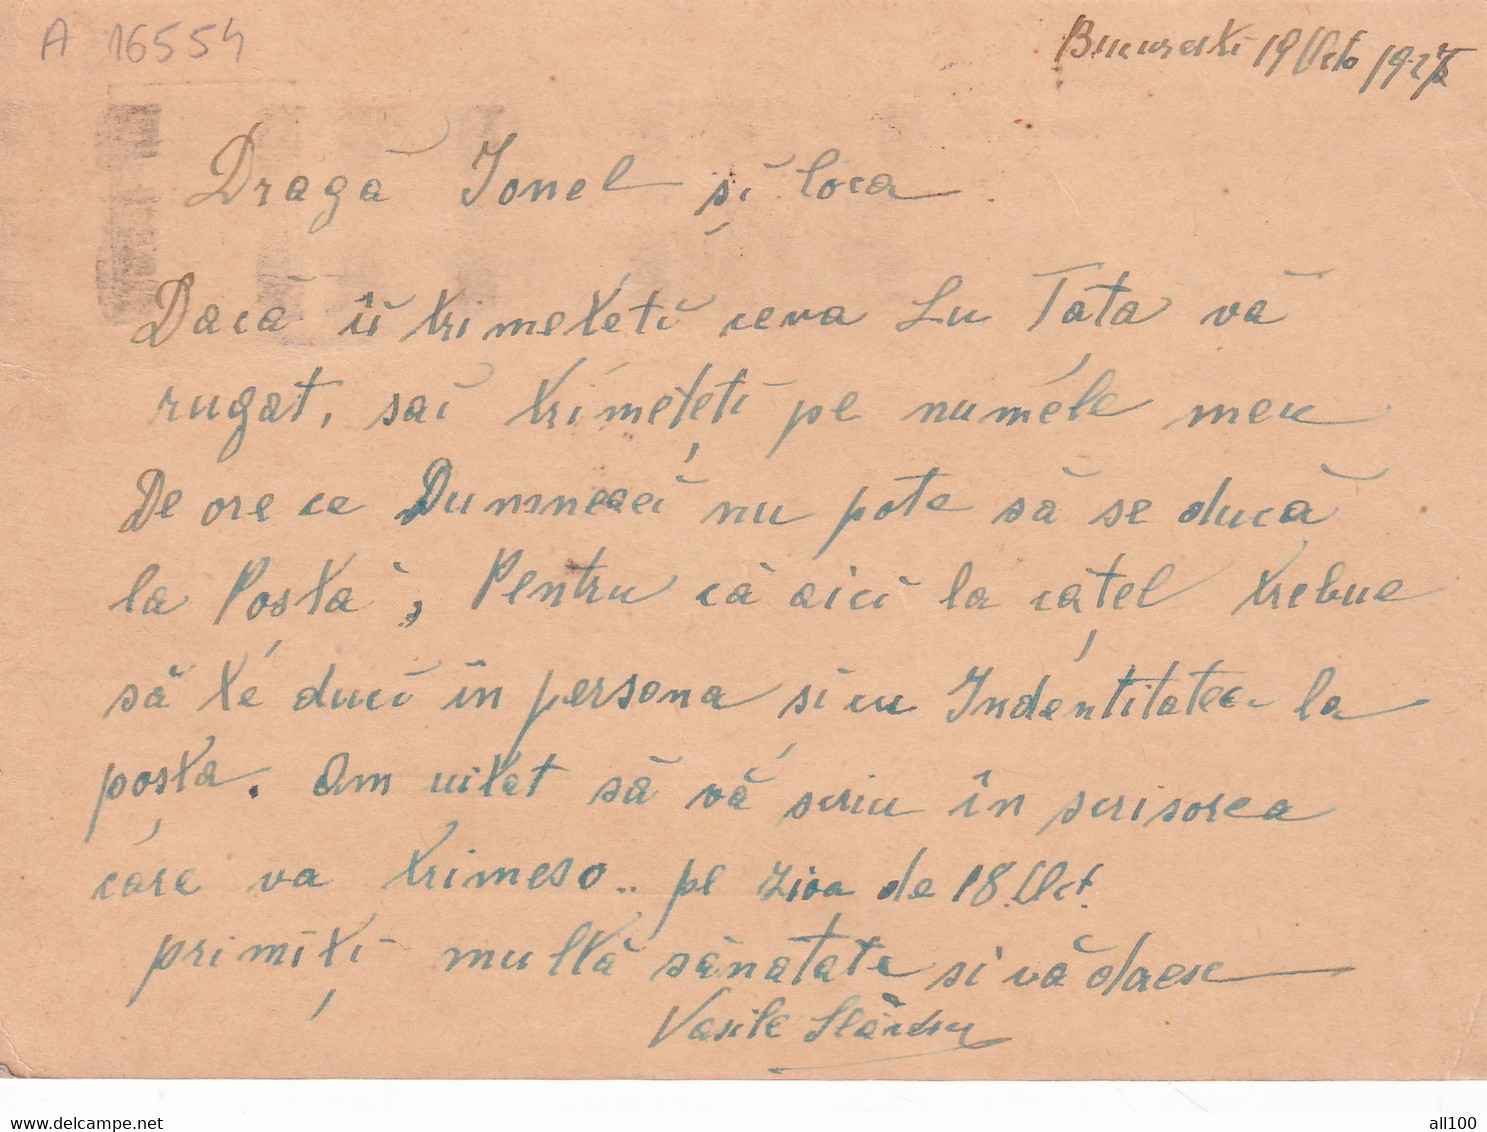 A 16554
Bucuresti 19 Octo
Dragă Ionel și loca
Dacă îi trimeteti ceva Lu Tata vă
rugat, sai trimeteți pe numele meu
De ore ce Dumneaei nu pote să se ducă
la Postă, Pentru că aici la cățel trebue
să te duci în persona si cu Indentitatea la
posta. Am uitat să vă scriu în scrisorea
care va trimeso.. pe ziva de 18. Oct.
primiți multă sănatate si vă doresc
Vasile
all100